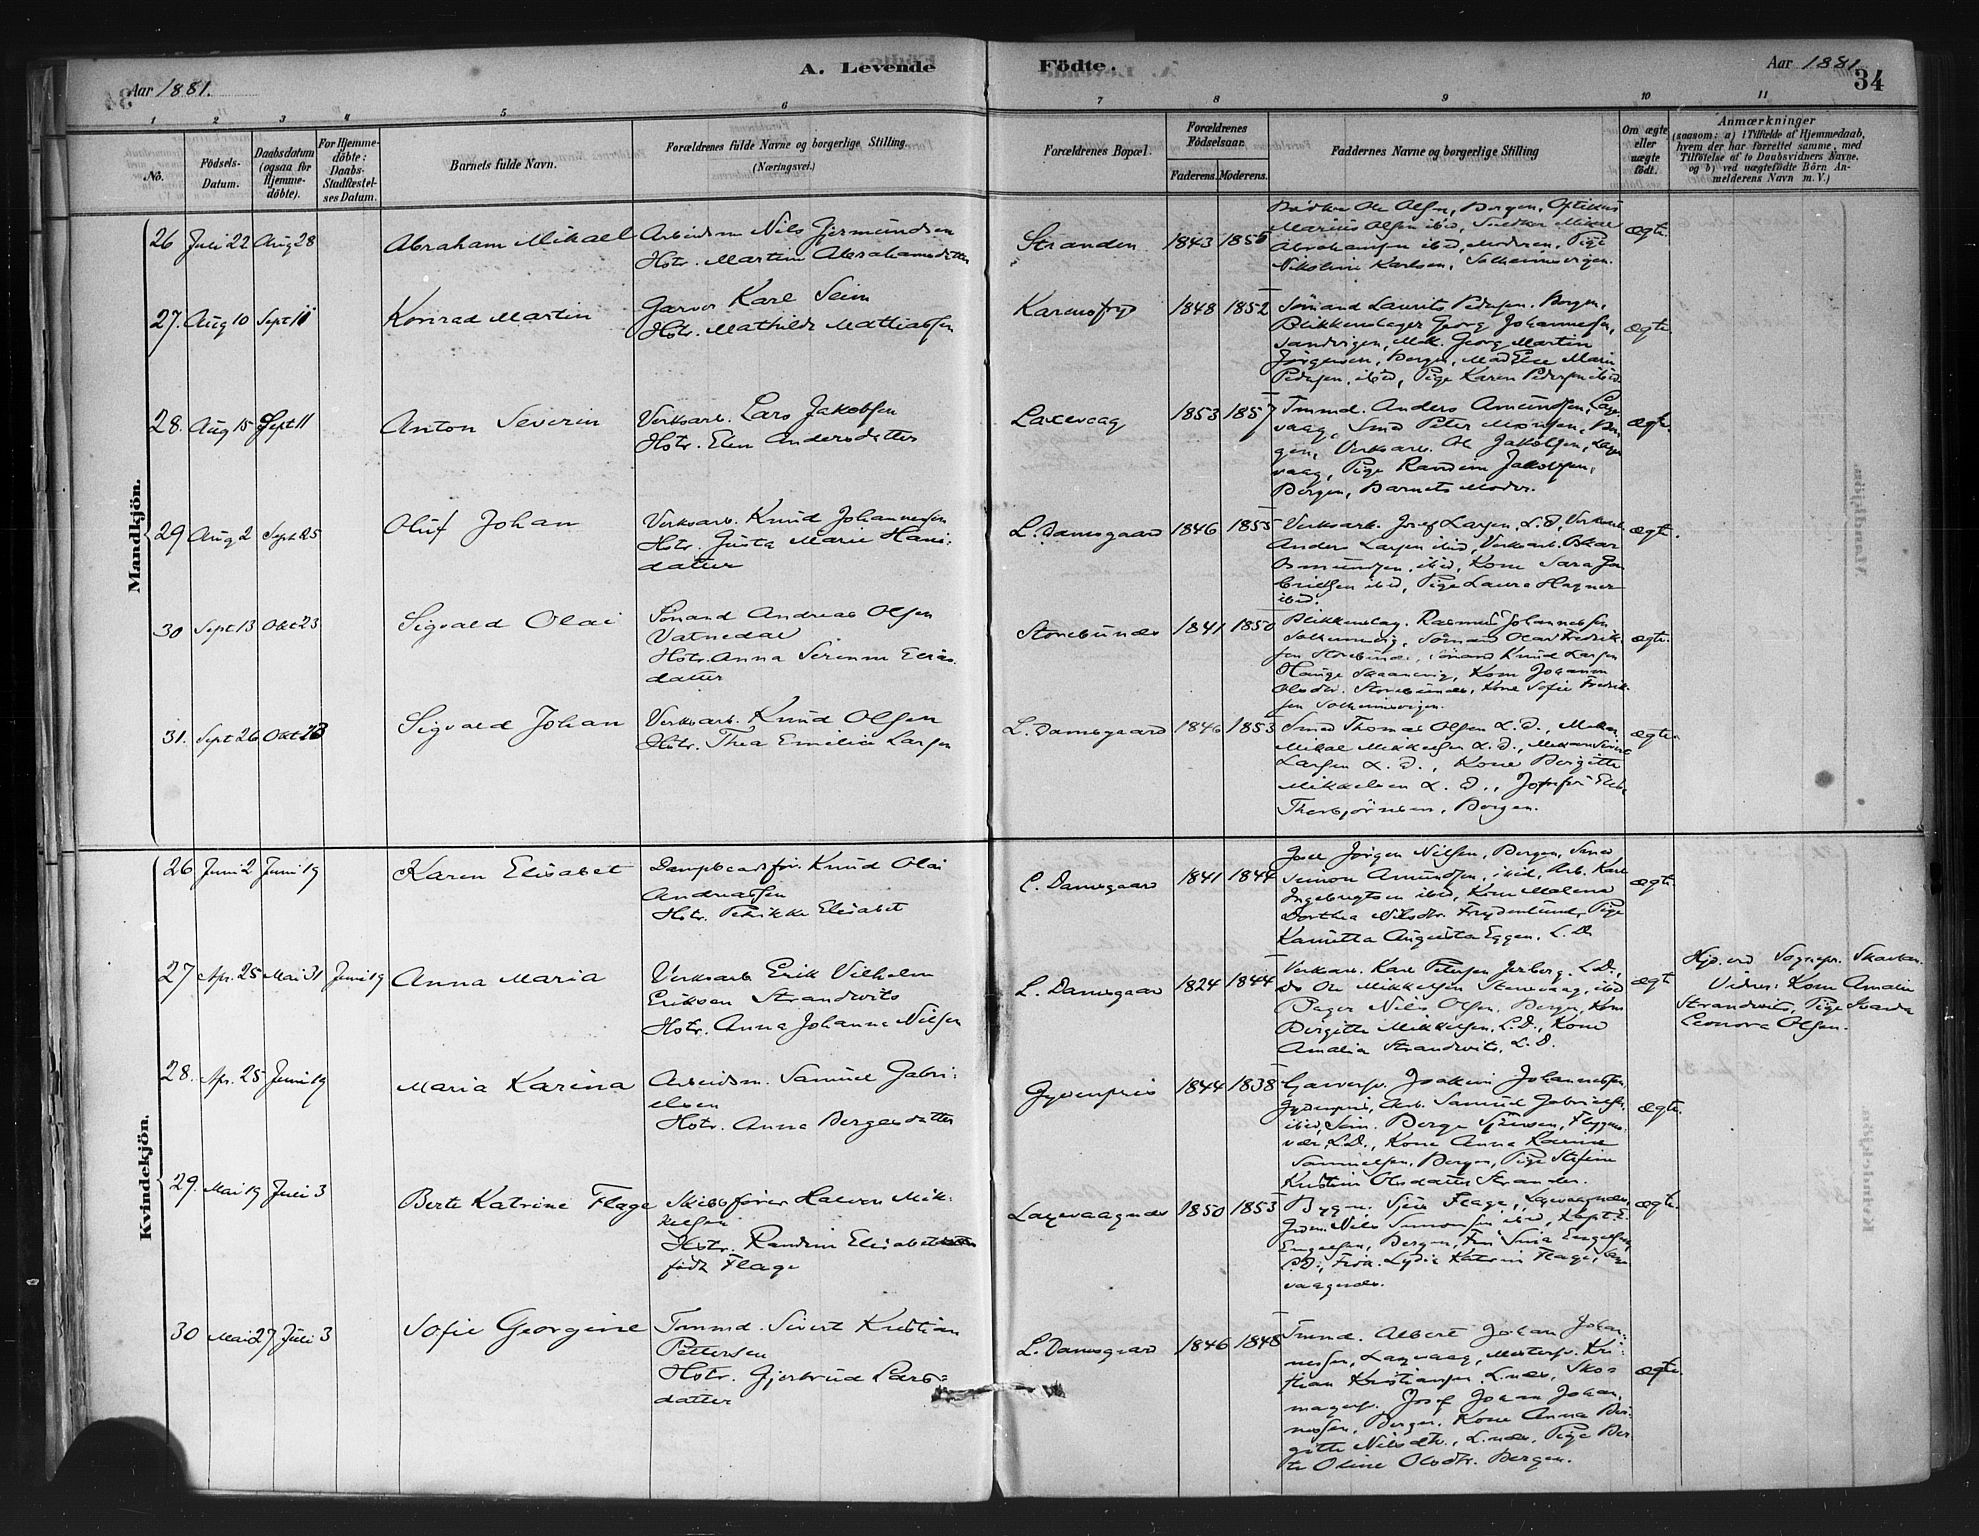 Aar 1881.
A. Levende
Födte.
Aar 1881
34
1 2 3 4 5 6 7 8 9 10 11
No.
Födsels-
Datum.
Daabsdatum
(ogsaa for
Hjemme-
döbte).
For Hjemme-
döbte:
Daabs-
Stadfæstel-
ses Datum.
Barnets fulde Navn.
Forældrenes fulde Navne og borgerlige Stilling.
(Næringsvei.)
Forældrenes Bopæl.
Forældrenes
Födselsaar.
Faderens. Moderens.
Faddernes Navne og borgerlige Stilling
Om ægte
eller
uægte
födt.
Anmærkninger
(saasom: a) i Tilfælde af Hjemmedaab,
hvem der har forrettet samme, med
Tilföielse af to Daabsvidners Navne,
og b) ved uægtefödte Börn An-
melderens Navn m. V.)
Mandkjön.
26 Juli 22 Aug 28
Abraham Mikael
Arbeidsm. Nils Gjermundsen
Hstr. Martine Abrahamsdatter
Stranden 1843
Ole Olsen, Bergen, Optikus
Marius Olsen ibid, Mikal
Abrahamsen ibid, Moderen, Pige
Nikoline Karlsen, Solheimsvigen.
ægte.
27. Aug 10 Sept 11
Konrad Martin
Garver Karl Seim
Hstr. Mathilde Mathiassen
1848 1852
Sømand Laurits Pedersen, Bergen,
Blikkenslager Georg Johannesen,
Sandvigen, Georg Martin
Jørgensen, Bergen, Else Marie
Pedersen, ibid, Pige Karen Pedersen ibid.
ægte.
28. Aug 15 Sept 11
Anton Severin
Verksarb. Lars Jakobsen
Hstr. Elen Andersdatter
Laxevaag 1853 1857
Tmmd. Anders Amundsen, Laxe-
vaag, Smed Peter Ber-
gen, Verksarb. Ole Jakobsen, Laxe-
vaag, Pige Randine Jakobsen,
Bergen, Barnets Moder.
ægte.
29 Aug 2 Sept 25
Oluf Johan
Verksarb. Knud Johannesen
Hstr. Gusta Marie Hans-
datter
L. Damsgaard 1846 1855
Verksarb. Josef Larsen, L.D, Verksarb.
Anders Larsen ibid, Verksarb. Oskar
ibid, Kone Sara Ga-
brielsen ibid, Pige Laura
ibid.
ægte.
30 Sept 13 Okt 23
Sigvald Olai
Sømand Andreas Olsen
Vatnedal
Hstr. Anna Serenne Elias-
datter
1841 1850
Blikkenslag. Rasmus Johannessen
Sømand Olai Fredrik-
sen Sømand Knud Larsen
Kone Johanna
Olsdtr. Kone Sofie Fredrik-
sen Solheimsvigen.
ægte.
31. Sept 26 Okt 23
Sigvald Johan
Verksarb. Knud Olsen
Hstr. Thea Emilie Larsen
L. Damsgaard 1846 1853
Smed Thomas Olsen L.D.,
Mikal Mikkelsen L.D.,
Larsen L.D., Kone Birgitte
Mikkelsen L.D.,
Thorbjørnsen, Bergen.
ægte.
Kvindekjön.
26 Juni 2 Juni 19
Karen Elisabet
Dampbaadsfør. Knud Olai
Andreassen
Hstr. Petrikke Elisabet
L. Damsgaard 1841 1844
Jørgen Nilsen, Bergen, Smed
Simon Amundsen, ibid, Arb. Karl
Ingebrigtsen ibid, Kone Malena
Dorthea Nilsdtr. Frydenlund, Pige
Augusta Eggen, L.D.
ægte.
27 Apr. 25 Mai 31 Juni 19
Anna Maria
Verksarb Erik Vilhelm
Erikson Strandwits
Hstr. Anna Johanna Nilsen
L. Damsgaard 1824 1844
Verksarb. Karl Petersen L.D.,
Do Ole Mikkelsen ibid
Bager Nils Olsen, Bergen, Kone
Birgitte Mikkelsen, L.D., Kone
Amalia Strandwits, L.D.
ægte
Hjd. ved Sognepr.
Vidner: Kone Amalie
Strandwits, Pige
Leonora Olsen.
28. Apr. 25 Juni 19
Maria Karina
Arbeidsm. Samuel Gabri-
elsen
Hstr. Anna Bergesdatter
Gyldenpris 1844 1838
Garversv. Joakim Johannessen,
Gyldenpris, Arb. Samuel Gabrielsen
ibid,
L.D., Kone Anna
Samuelsen, Bergen, Pige
Kristine Olsdatter Stranden.
ægte.
29. Mai 19 Juli 3
Berte Katrine Flage
Skibsfører Halvor Mik-
kelsen
Hstr. Randine Elisabet
født Flage
Laxevaagnæs 1850 1853
Flage, Laxevaagnæs,
Nils Simonsen ibid, Kapt. E.
Engelsen, Bergen, Engelsen,
L.D., Lydia Katrine Flage, Laxe-
vaagnæs.
ægte.
30 Mai 27 Juli 3
Sofie Georgine
Tmmd. Sivert Kristian
Pettersen
Hstr. Gjertrud Lars-
datter
L. Damsgaard 1846 1848
Tmmd. Albert Johan Johan-
nessen, Laxevaag, Kri-
stian Kristiansen L.næs, Sko-
magersv. Josef Johan Johan-
nessen, Bergen. Kone Anna Bir-
gitte Nilsdtr., L.næs, Pige Ber-
te Oline Olsdtr. Bergen.
ægte.